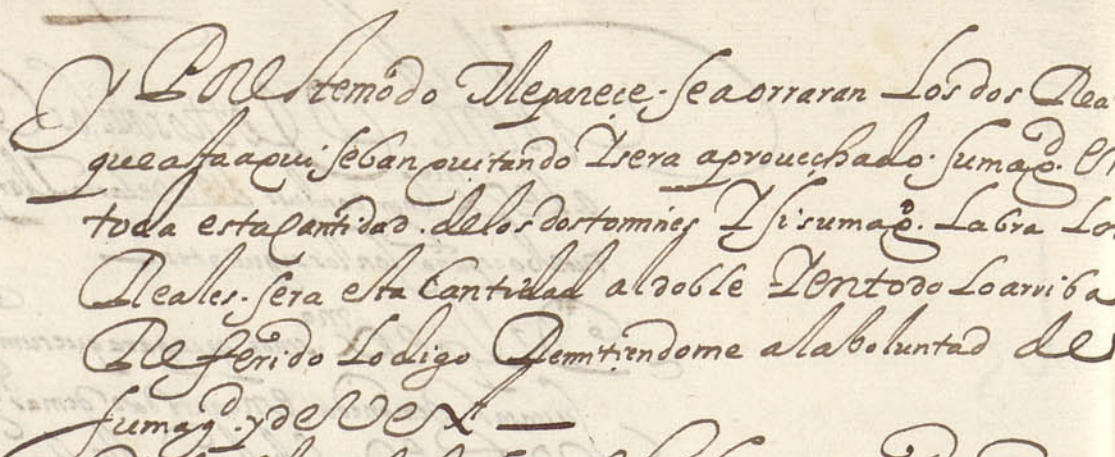 Y Por este modo Me pareçe. se aorraran Los dos Rea
que asta aqui se ban quitando Y sera aprouechado. su mag.d en
toda esta Cantidad. de los dos tomines Y si su mag.d. Labra Los
Reales. sera esta Cantidad al doble Y en todo Lo arriba
Referido Lo digo Remitiendome a la boluntad de
su mag.d. y de V Ex.a